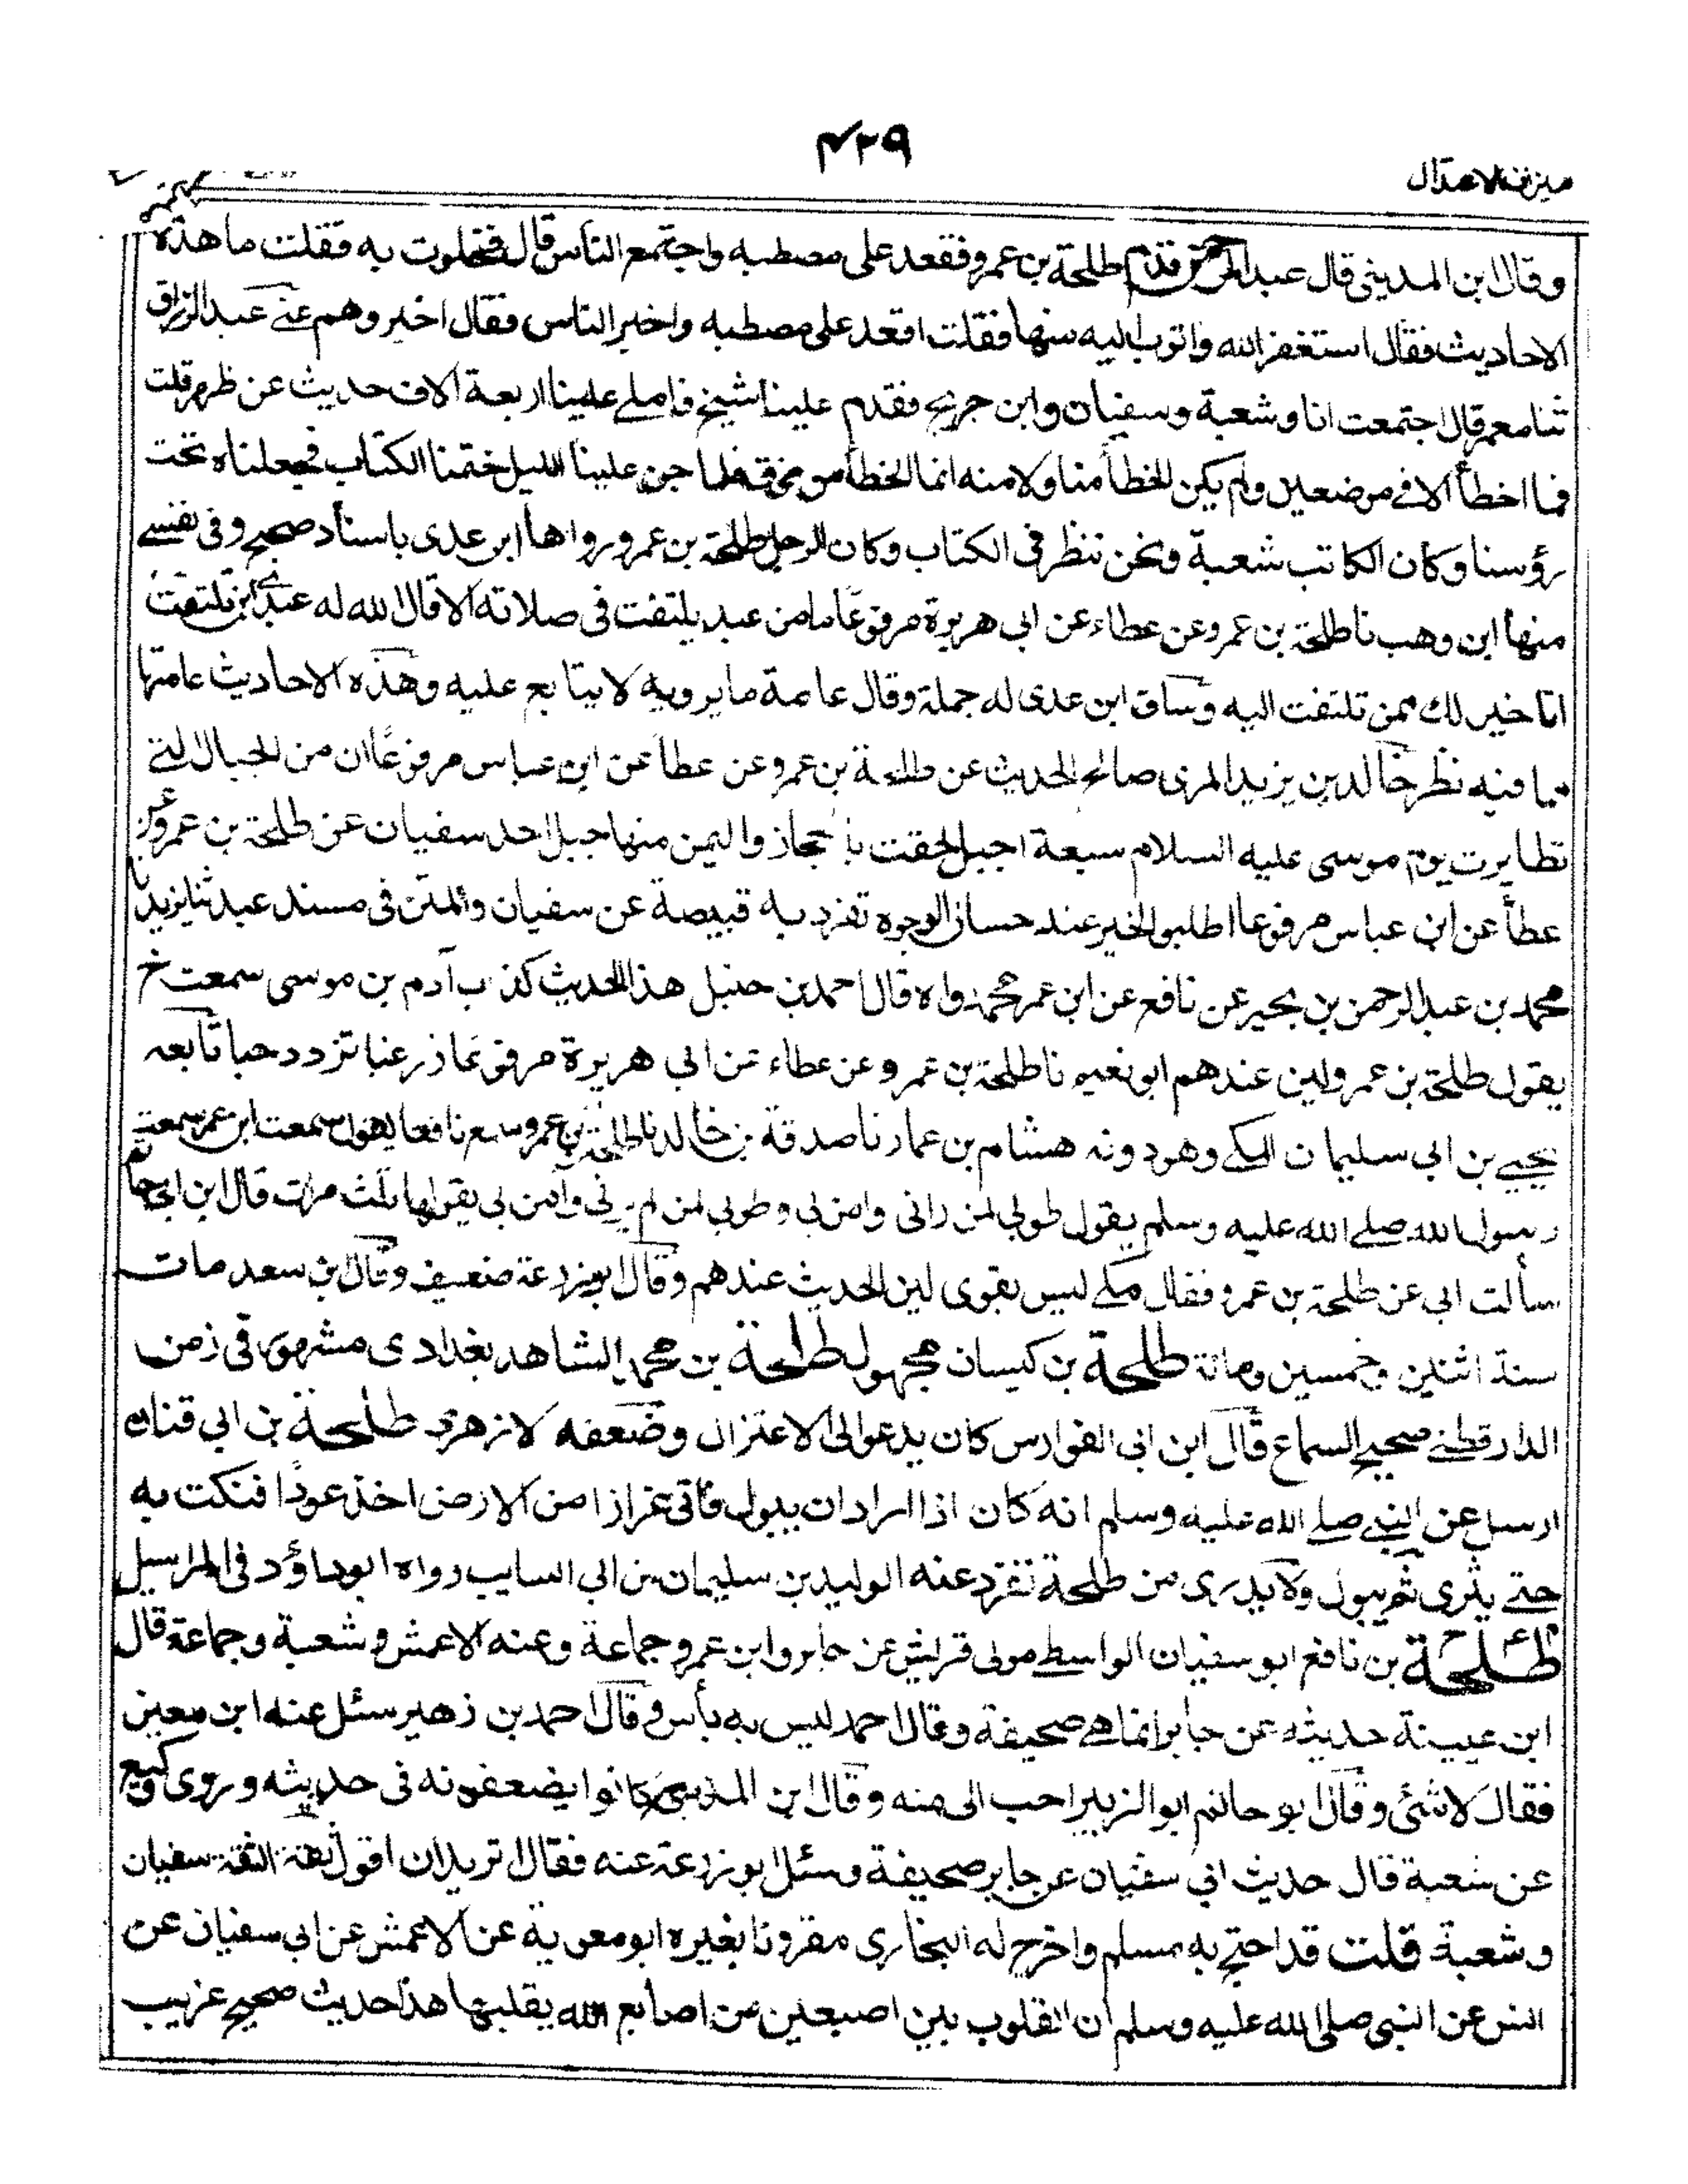 ۴۲۹
ميزان الاعتدال
وقال ابن المديني قال عبد الرحمن قدم طلحة بن عمرو فقعد على مصطبه واجتمع الناس قال فخلوت به فقلت ما هذه
الاحاديث فقال استغفر الله واتوب اليه منها فقلت اقعد على مصطبه واخبر الناس فقال اخبروهم عني عبد الرزاق
ثنا معمر قال اجتمعت انا وشعبة وسفيان وابن جريج فقدم علينا شيخ فاملے علينا اربعة الاف حديث عن ظهر قلت
فما اخطأ الا في موضعين ولم يكن الخطأ منا ولا منه انما الخطأ من فوقه فلما جن علينا الليل ختمنا الكتاب فجعلناه تحت
رؤسنا وكان الكاتب شعبة ونحن ننظر فى الكتاب وكان الرجل طلحة بن عمرو رواها ابن عدى باسناد صحيح وفى نفسے
منها ابن وهب نا طلحة بن عمرو عن عطاء عن ابى هريرة مرفوعا ما من عبد يلتفت فى صلاته الا قال الله له عبدي اين تلتفت
انا خير لك ممن تلتفت اليه وساق ابن عدى له جملة وقال عامة ما يرويه لا يتابع عليه وهذه الاحاديث عامتها
مما فيه نظر خالد بن يزيد المرى صالح الحديث عن طلحة بن عمرو عن عطا عن ابن عباس مرفوعا ان من الجبال التے
تطايرت يوم موسى عليه السلام سبعة اجبل لحقت بالحجاز واليمن منها جبل احد سفيان عن طلحة بن عمرو عن
عطأ عن ابن عباس مرفوعا اطلبوا الخير عند حسان الوجوه تفرد به قبيصة عن سفيان والمتن فى مسند عبد ثنا يزيد نا
محمد بن عبد الرحمن بن بجير عن نافع عن ابن عمر محمد واه قال احمد بن حنبل هذا الحديث كذب آدم بن موسى سمعت خ
يقول طلحة بن عمرو لين عندهم ابو نعيم نا طلحة بن عمرو عن عطاء عن ابى هريرة مرفوعا زر غبا تزدد حبا تابعه
يحيے بن ابى سليمان المكے وهو دونه هشام بن عمار نا صدقة بن خالد نا طلحة بن عمرو سمع نافعا يقول سمعت ابن عمر سمعت
رسول الله صلے الله عليه وسلم يقول طوبى لمن رانى وامن بى وطوبى لمن لم يرني وآمن بى يقولها ثلث مرات قال ابن ابى حاتم
سألت ابى عن طلحة بن عمرو فقال مكے ليس بقوى لين الحديث عندهم وقال ابو زرعة ضعيف وقال بن سعد مات
سنة اثنتين وخمسين ومائة طلحة بن كيسان مجهول طلحة بن محمد الشاهد بغدادى مشهور فى زمن
الدارقطنے صحيح السماع قال ابن ابى الفوارس كان يدعو الى الاعتزال وضعفه الازهرى طلحة بن ابى قنان
ارسل عن النبے صلے الله عليه وسلم انه كان اذا اراد ان يبول فاتى عزازا من الارض اخذ عودا فنكت به
حتے يثرى ثم يبول ولا يدرى من طلحة تفرد عنه الوليد بن سليمان بن ابى السايب رواه ابو داؤد فى المراسيل
طلحة بن نافع ابو سفيان الواسطے مولى قريش عن جابر وابن عمر وجماعة وعنه الاعمش وشعبة وجماعة قال
ابن عيينة حديثه عن جابر انما هے صحيفة وقال احمد ليس به بأس وقال احمد بن زهير سئل عنه ابن معين
فقال لا شئ وقال ابو حاتم ابو الزبير احب الى منه وقال ابن المدينى كانوا يضعفونه فى حديثه وروى وكيع
عن شعبة قال حديث ابى سفيان عن جابر صحيفة وسئل ابو زرعة عنه فقال تريد ان اقول ثقة الثقة سفيان
وشعبة قلت قد احتج به مسلم واخرج له البخارى مقرونا بغيره ابو معوية عن الاعمش عن ابى سفيان عن
انس عن النبى صلى الله عليه وسلم ان القلوب بين اصبعين من اصابع الله يقلبها هذا حديث صحيح غريب